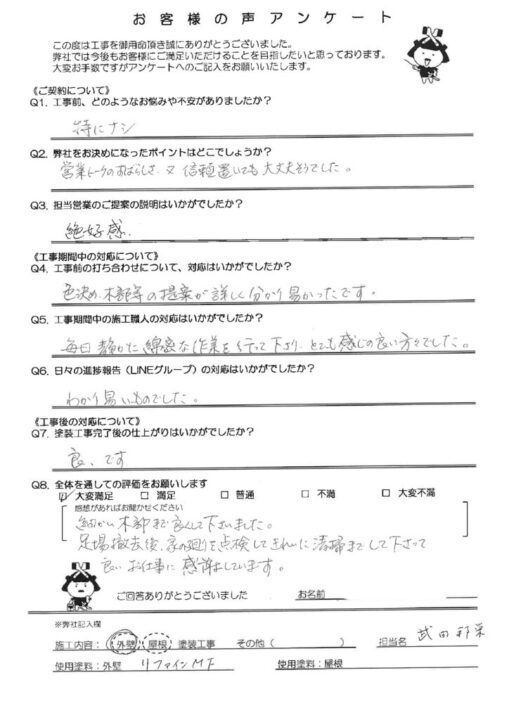 お客様の声アンケート
この度は工事を御用命頂き誠にありがとうございました。
弊社では今後もお客様にご満足いただけることを目指したいと思っております。
大変お手数ですがアンケートへのご記入をお願いいたします。
《ご契約について》
Q1. 工事前、どのようなお悩みや不安がありましたか？
特にナシ
Q2. 弊社をお決めになったポイントはどこでしょうか？
営業トークのすばらしさ 又 信頼置いても大丈夫そうでした。
Q3. 担当営業のご提案の説明はいかがでしたか？
絶好感.
《工事期間中の対応について》
Q4. 工事前の打ち合わせについて、対応はいかがでしたか？
色決め、木部等の提案が詳しく分かり易かったです。
Q5. 工事期間中の施工職人の対応はいかがでしたか？
毎日静かに綿密な作業を行って下さり、とても感じの良い方々でした。
Q6. 日々の進捗報告（LINEグループ）の対応はいかがでしたか？
わかり易いものでした。
《工事後の対応について》
Q7. 塗装工事完了後の仕上がりはいかがでしたか？
良いです
Q8. 全体を通しての評価をお願いします
☑ 大変満足 □ 満足 □ 普通 □ 不満 □ 大変不満
感想があればお聞かせください
細かい木部まで良くして下さいました。
足場撤去後、家の廻りを点検してきれいに清掃までして下さって
良いお仕事に感謝しています。
ご回答ありがとうございました お名前
※弊社記入欄
施工内容：外壁・屋根 塗装工事 その他（ ） 担当名 武田
使用塗料：外壁 リファインMF 使用塗料：屋根